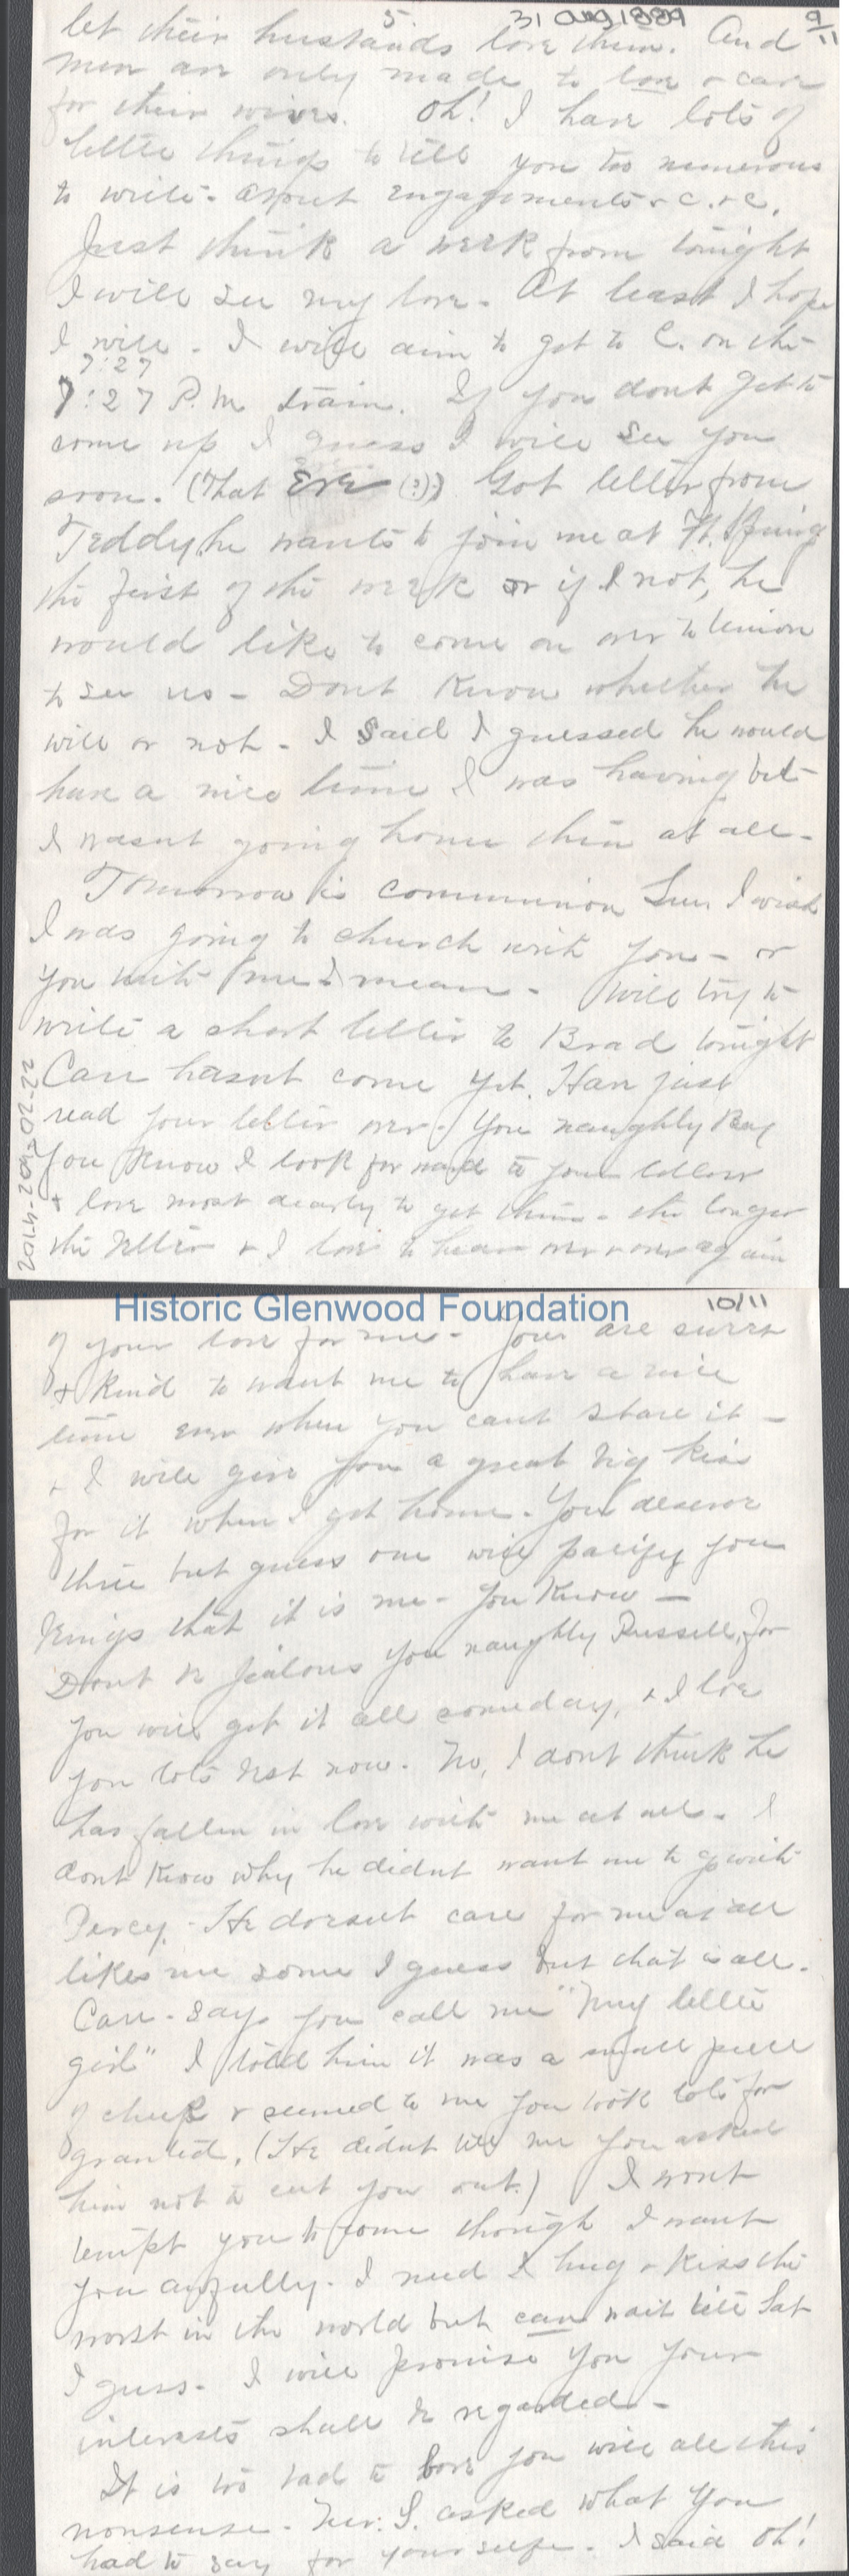 5.
31 Aug 1889
9/11
let their husbands love them. And
men are only made to love & care
for their wives. Oh! I have lots of
little things to tell you too numerous
to write - about engagements & c. & c.
Just think a week from tonight
I will see my love - At least I hope
I will - I will aim to get to C. on the
7:27
7:27 P.M train. If you dont get to
come up I guess I will see you
soon. (That Eve (?)) Got letter from
Teddy, he wants to join me at Ft. Spring
the first of the week or if not, he
would like to come on over to Union
to see us - Dont know whether he
will or not - I said I guessed he would
have a nice time I was having but
I wasnt going home then at all -
Tomorrow is communion Sun I wish
I was going to church with you - or
you with me I mean - Will try to
write a short letter to Brad tonight
Carr hasnt come yet. Have just
read your letter over - You naughty Boy
you know I look forward to your letters
& love most dearly to get them - the longer
the better & I love to hear over & over again
2014-204-02-22
Historic Glenwood Foundation
10/11
of your love for me - You are sweet
& kind to want me to have a nice
time even when you cant share it -
& I will give you a great big kiss
for it when I get home - You deserve
three but guess one will pacify you
that it is me - you know -
Dont be jealous you naughty Russell, for
you will get it all someday, & I love
you lots best now - No, I dont think he
has fallen in love with me at all - I
dont know why he didnt want me to go with
Percy - He doesnt care for me at all
likes me some I guess but that is all -
Carr - says you call me "My little
girl" I told him it was a small piece
of cheek & seemed to me you took lots for
granted, (He didnt tell me you asked
him not to cut you out.) I wont
tempt you to come though I want
you awfully. I need a hug & kiss the
worst in the world but can wait till Sat
I guess - I will promise you your
interests shall be regarded -
It is too bad to bore you with all this
nonsense - S. asked what you
had to say for yourself - I said Oh!